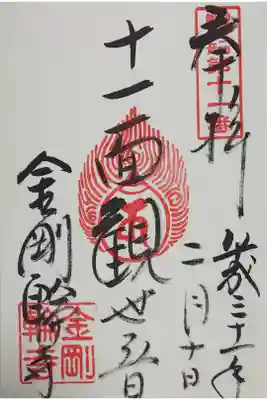 奉拝
平成三十一年
二月十日
十一面観世音
金剛輪寺
金剛
輪寺